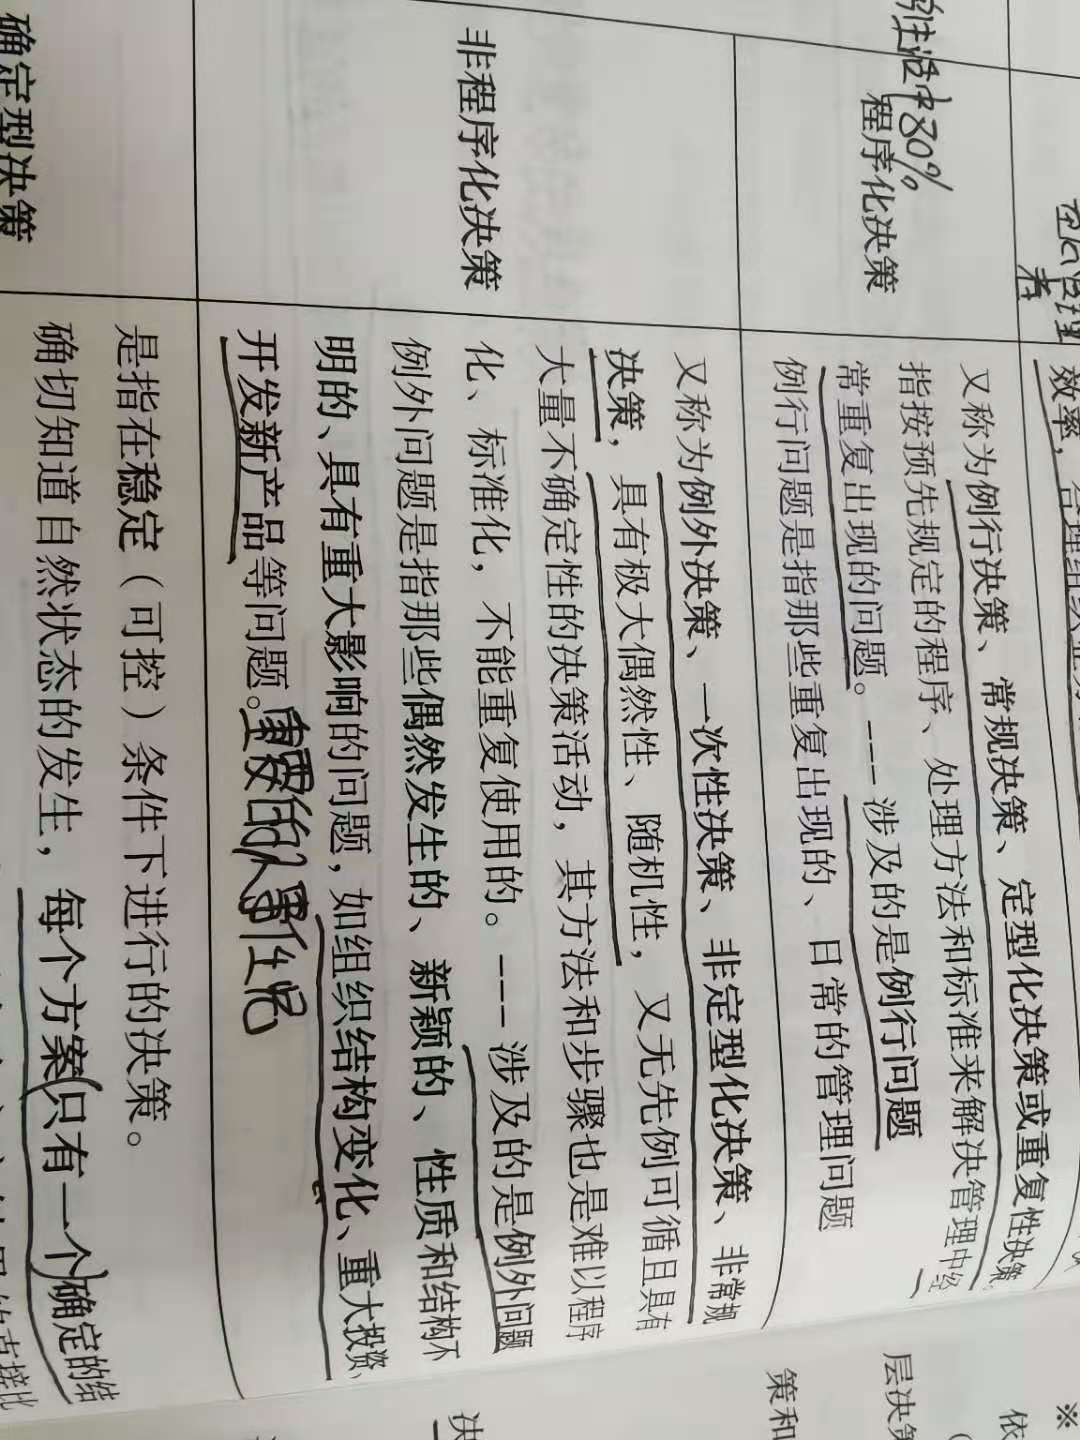 效率，合理组织业务
程序化决策
生活中80%
又称为例行决策、常规决策、定型化决策或重复性决策，
指按预先规定的程序、处理方法和标准来解决管理中经
常重复出现的问题。---涉及的是例行问题
例行问题是指那些重复出现的、日常的管理问题
非程序化决策
又称为例外决策、一次性决策、非定型化决策、非常规
决策，具有极大偶然性、随机性，又无先例可循且具有
大量不确定性的决策活动，其方法和步骤也是难以程序
化、标准化，不能重复使用的。---涉及的是例外问题
例外问题是指那些偶然发生的、新颖的、性质和结构不
明的、具有重大影响的问题，如组织结构变化、重大投资、
开发新产品等问题。重要的人事任免
确定型决策
是指在稳定（可控）条件下进行的决策。
确切知道自然状态的发生，每个方案(只有一个)确定的结
※
依
层决策
策和
决